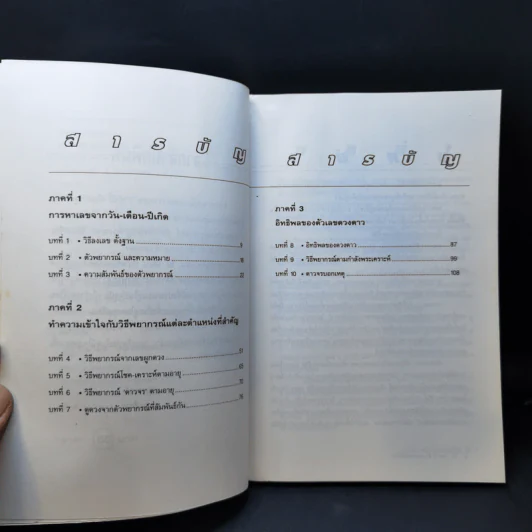 สารบัญ
ภาคที่ 1
การหาเลขจากวัน-เดือน-ปีเกิด
บทที่ 1 • วิธีลงเลข ตั้งฐาน
บทที่ 2 • ตัวพยากรณ์ และความหมาย
บทที่ 3 • ความสัมพันธ์ของตัวพยากรณ์
ภาคที่ 2
ทำความเข้าใจกับวิธีพยากรณ์แต่ละตำแหน่งที่สำคัญ
บทที่ 4 • วิธีพยากรณ์จากเลขผูกดวง
บทที่ 5 • วิธีพยากรณ์โชค-เคราะห์ตามอายุ
บทที่ 6 • วิธีพยากรณ์ 'ดาวจร' ตามอายุ
บทที่ 7 • ดูดวงจากตัวพยากรณ์ที่สัมพันธ์กัน
สารบัญ
ภาคที่ 3
อิทธิพลของตัวเลขดวงดาว
บทที่ 8 • อิทธิพลของดวงดาว 87
บทที่ 9 • วิธีพยากรณ์ตามกำลังพระเคราะห์ 99
บทที่ 10 • ดาวจรบอกเหตุ 108